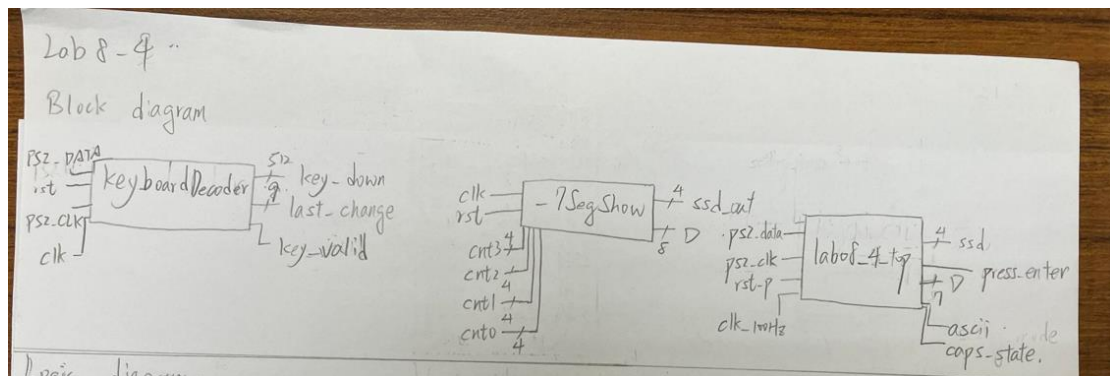 Lab 8-4
Block diagram
PS2_DATA
rst
PS2_CLK
clk
keyboardDecoder
512
key_down
9
last_change
key_valid
clk
rst
cnt3
4
cnt2
4
cnt1
4
cnt0
4
_7SegShow
4
ssd_out
8
D
ps2_data
ps2_clk
rst_p
clk_100Hz
lab08_4_top
4
ssd
press_enter
7
D
ascii
caps_state.
Logic diagram